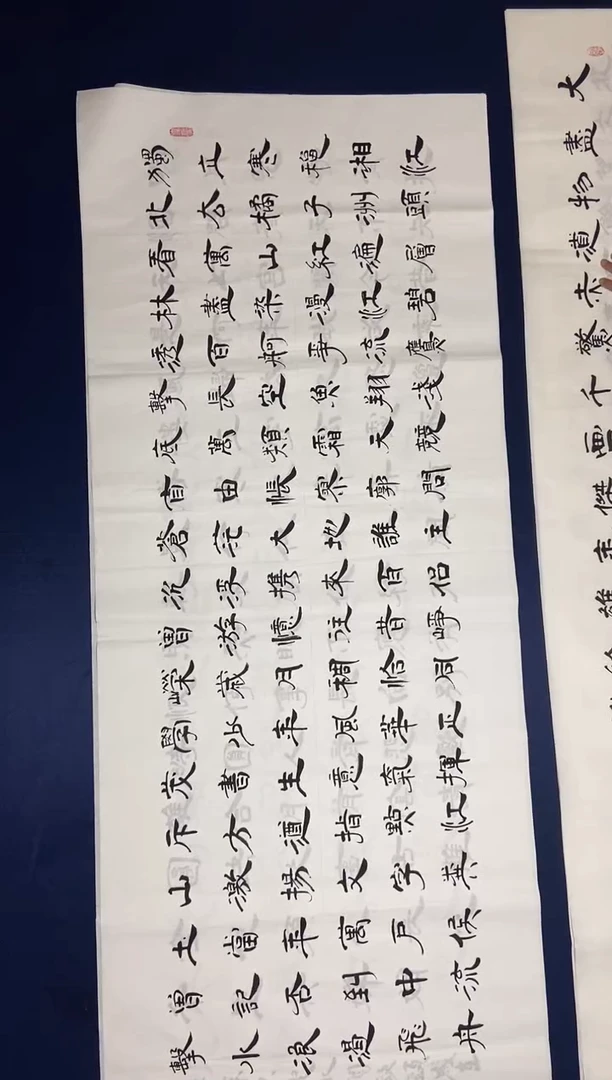 獨立寒穐湘江
北去橘子洲頭
看萬山紅遍層
林盡染漫江碧
透百舸爭流鷹
擊長空魚翔淺
底萬類霜天競
自由悵寥廓問
蒼茫大地誰主
沉浮携來百侣
曾游憶往昔崢
嶸歲月稠恰同
學少年風華正
茂書生意氣揮
斥方遒指點江
山激揚文字糞
土當年萬户侯
曾記否到中流
擊水浪遏飛舟
大
盡
物
道
赤
驚
千
畫
傑
年
雄